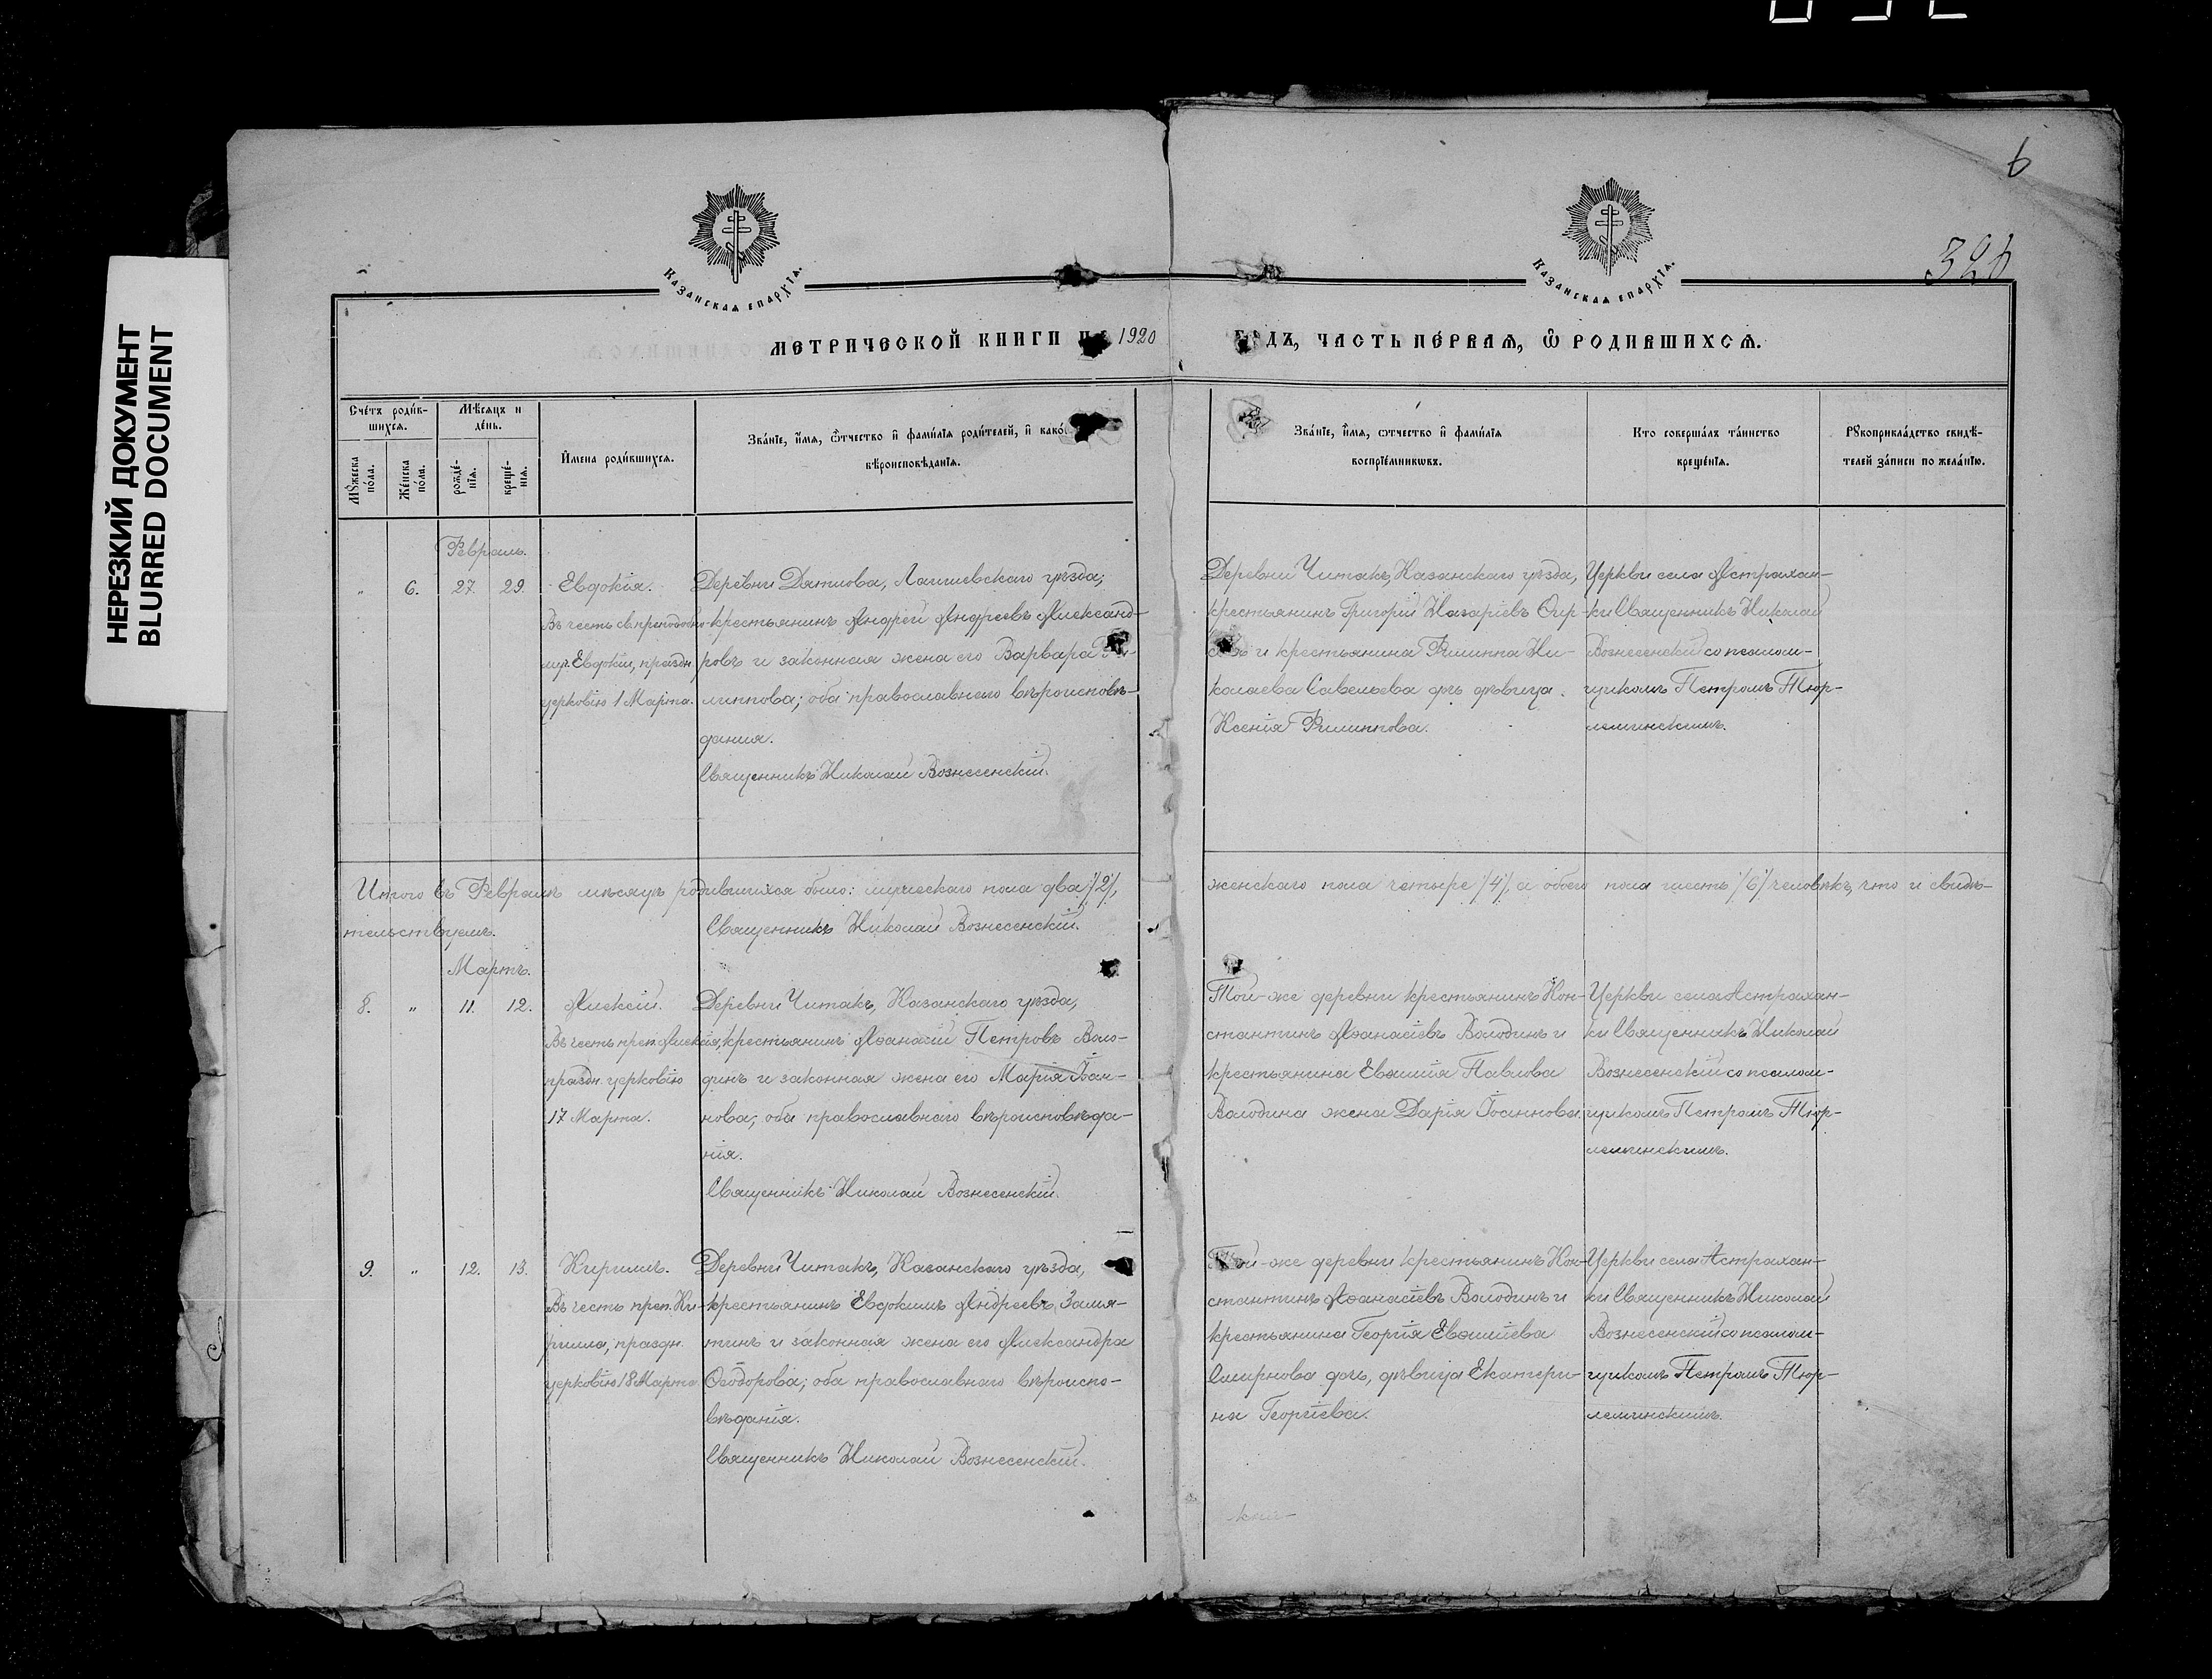 НЕРЕЗКИЙ ДОКУМЕНТ
BLURRED DOCUMENT
6
326
Казанская епархїѧ.
Казанская епархїѧ.
МЕТРИЧЕСКОЙ КНИГИ НА 1920
ГОДЪ, ЧАСТЬ ПЕ́РВАѦ, Ѿ РОДИВШИХСѦ.
Сче́тъ роди́в-
шихсѧ.
Мѣ́сѧцъ и
де́нь.
Мꙋ́жеска
по́ла.
Же́нска
по́ла.
рожде́-
нїѧ.
креще́-
нїѧ.
И҆мена роди́вшихсѧ.
Зва́нїе, и҆́мѧ, ѻ҆́тчество и҆ фами́лїѧ роди́телей, и҆ како́
вѣроисповѣ́данїѧ.
Зва́нїе, и҆́мѧ, ѻ҆тчество и҆ фами́лїѧ
воспрїе́мникѡвъ.
Кто соверша́лъ та́инство
креще́нїѧ.
Рꙋкоприкла́дство свидѣ́-
телей за́писи по жела́нїю.
Февраль.
„ 6. 27. 29.
Евдокія.
Въ честь св. преподобно-
муч. Евдокіи, праздн.
церковію 1 Марта.
Деревни Дятлова, Лаишевскаго уѣзда,
крестьянинъ Андрей Андреевъ Александ-
ровъ и законная жена его Варвара Фи-
липпова; оба православнаго вѣроисповѣ-
дания.
Священникъ Николай Вознесенскій.
Деревни Читакъ, Казанскаго уѣзда,
крестьянинъ Григорій Назаріевъ
и крестьянина Филиппа Ни-
колаева Савельева дчъ дѣвица
Ксенія Филиппова.
Церкви села Астрахан-
ки Священникъ Николай
Вознесенскій со псалом-
щикомъ Петромъ Тюр-
леминскимъ.
Итого въ Февралѣ мѣсяцѣ родившихся было: мужескаго пола два /2/,
женскаго пола четыре /4/, а обоего пола шесть /6/ человѣкъ, что и свидѣ-
тельствуемъ.
Священникъ Николай Вознесенскій.
Мартъ.
8. „ 11. 12.
Алексій.
Въ честь преп. Алексія,
праздн. церковію
17 Марта.
Деревни Читакъ, Казанскаго уѣзда,
крестьянинъ Аѳанасій Петровъ Воло-
динъ и законная жена его Марія Іоан-
нова; оба православнаго вѣроисповѣда-
нія.
Священникъ Николай Вознесенскій.
Той-же деревни крестьянинъ Кон-
стантинъ Аѳанасіевъ Володинъ и
крестьянина Евѳимія Павлова
Володина жена Дарія Іоаннова.
Церкви села Астрахан-
ки Священникъ Николай
Вознесенскій со псалом-
щикомъ Петромъ Тюр-
леминскимъ.
9. „ 12. 13.
Кириллъ.
Въ честь преп. Ки-
рилла, праздн.
церковію 18 Марта.
Деревни Читакъ, Казанскаго уѣзда,
крестьянинъ Евдокимъ Андреевъ Замя-
тинъ и законная жена его Александра
Ѳеодорова; оба православнаго вѣроиспо-
вѣданія.
Священникъ Николай Вознесенскій.
Той-же деревни крестьянинъ Кон-
стантинъ Аѳанасіевъ Володинъ и
крестьянина Георгія Евѳиміева
Смирнова дочь, дѣвица Екатери-
на Георгіева.
Церкви села Астрахан-
ки Священникъ Николай
Вознесенскій со псалом-
щикомъ Петромъ Тюр-
леминскимъ.